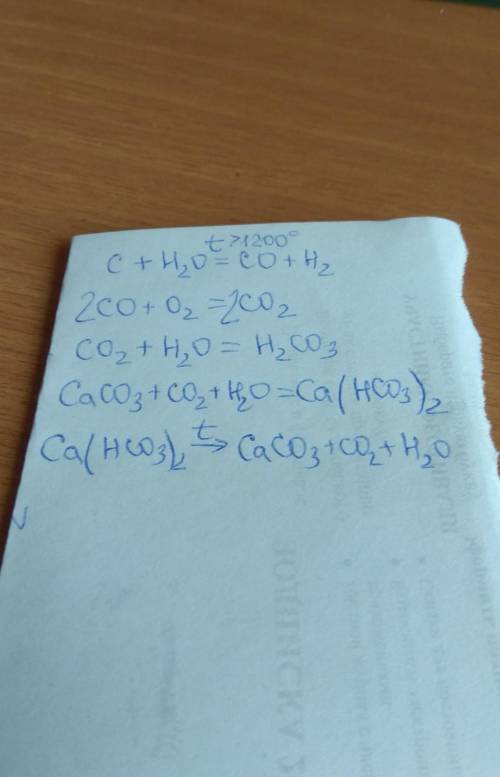 t>1200°
C + H₂O = CO + H₂
2CO + O₂ = 2CO₂
CO₂ + H₂O = H₂CO₃
CaCO₃ + CO₂ + H₂O = Ca(HCO₃)₂
t
Ca(HCO₃)₂ → CaCO₃ + CO₂ + H₂O